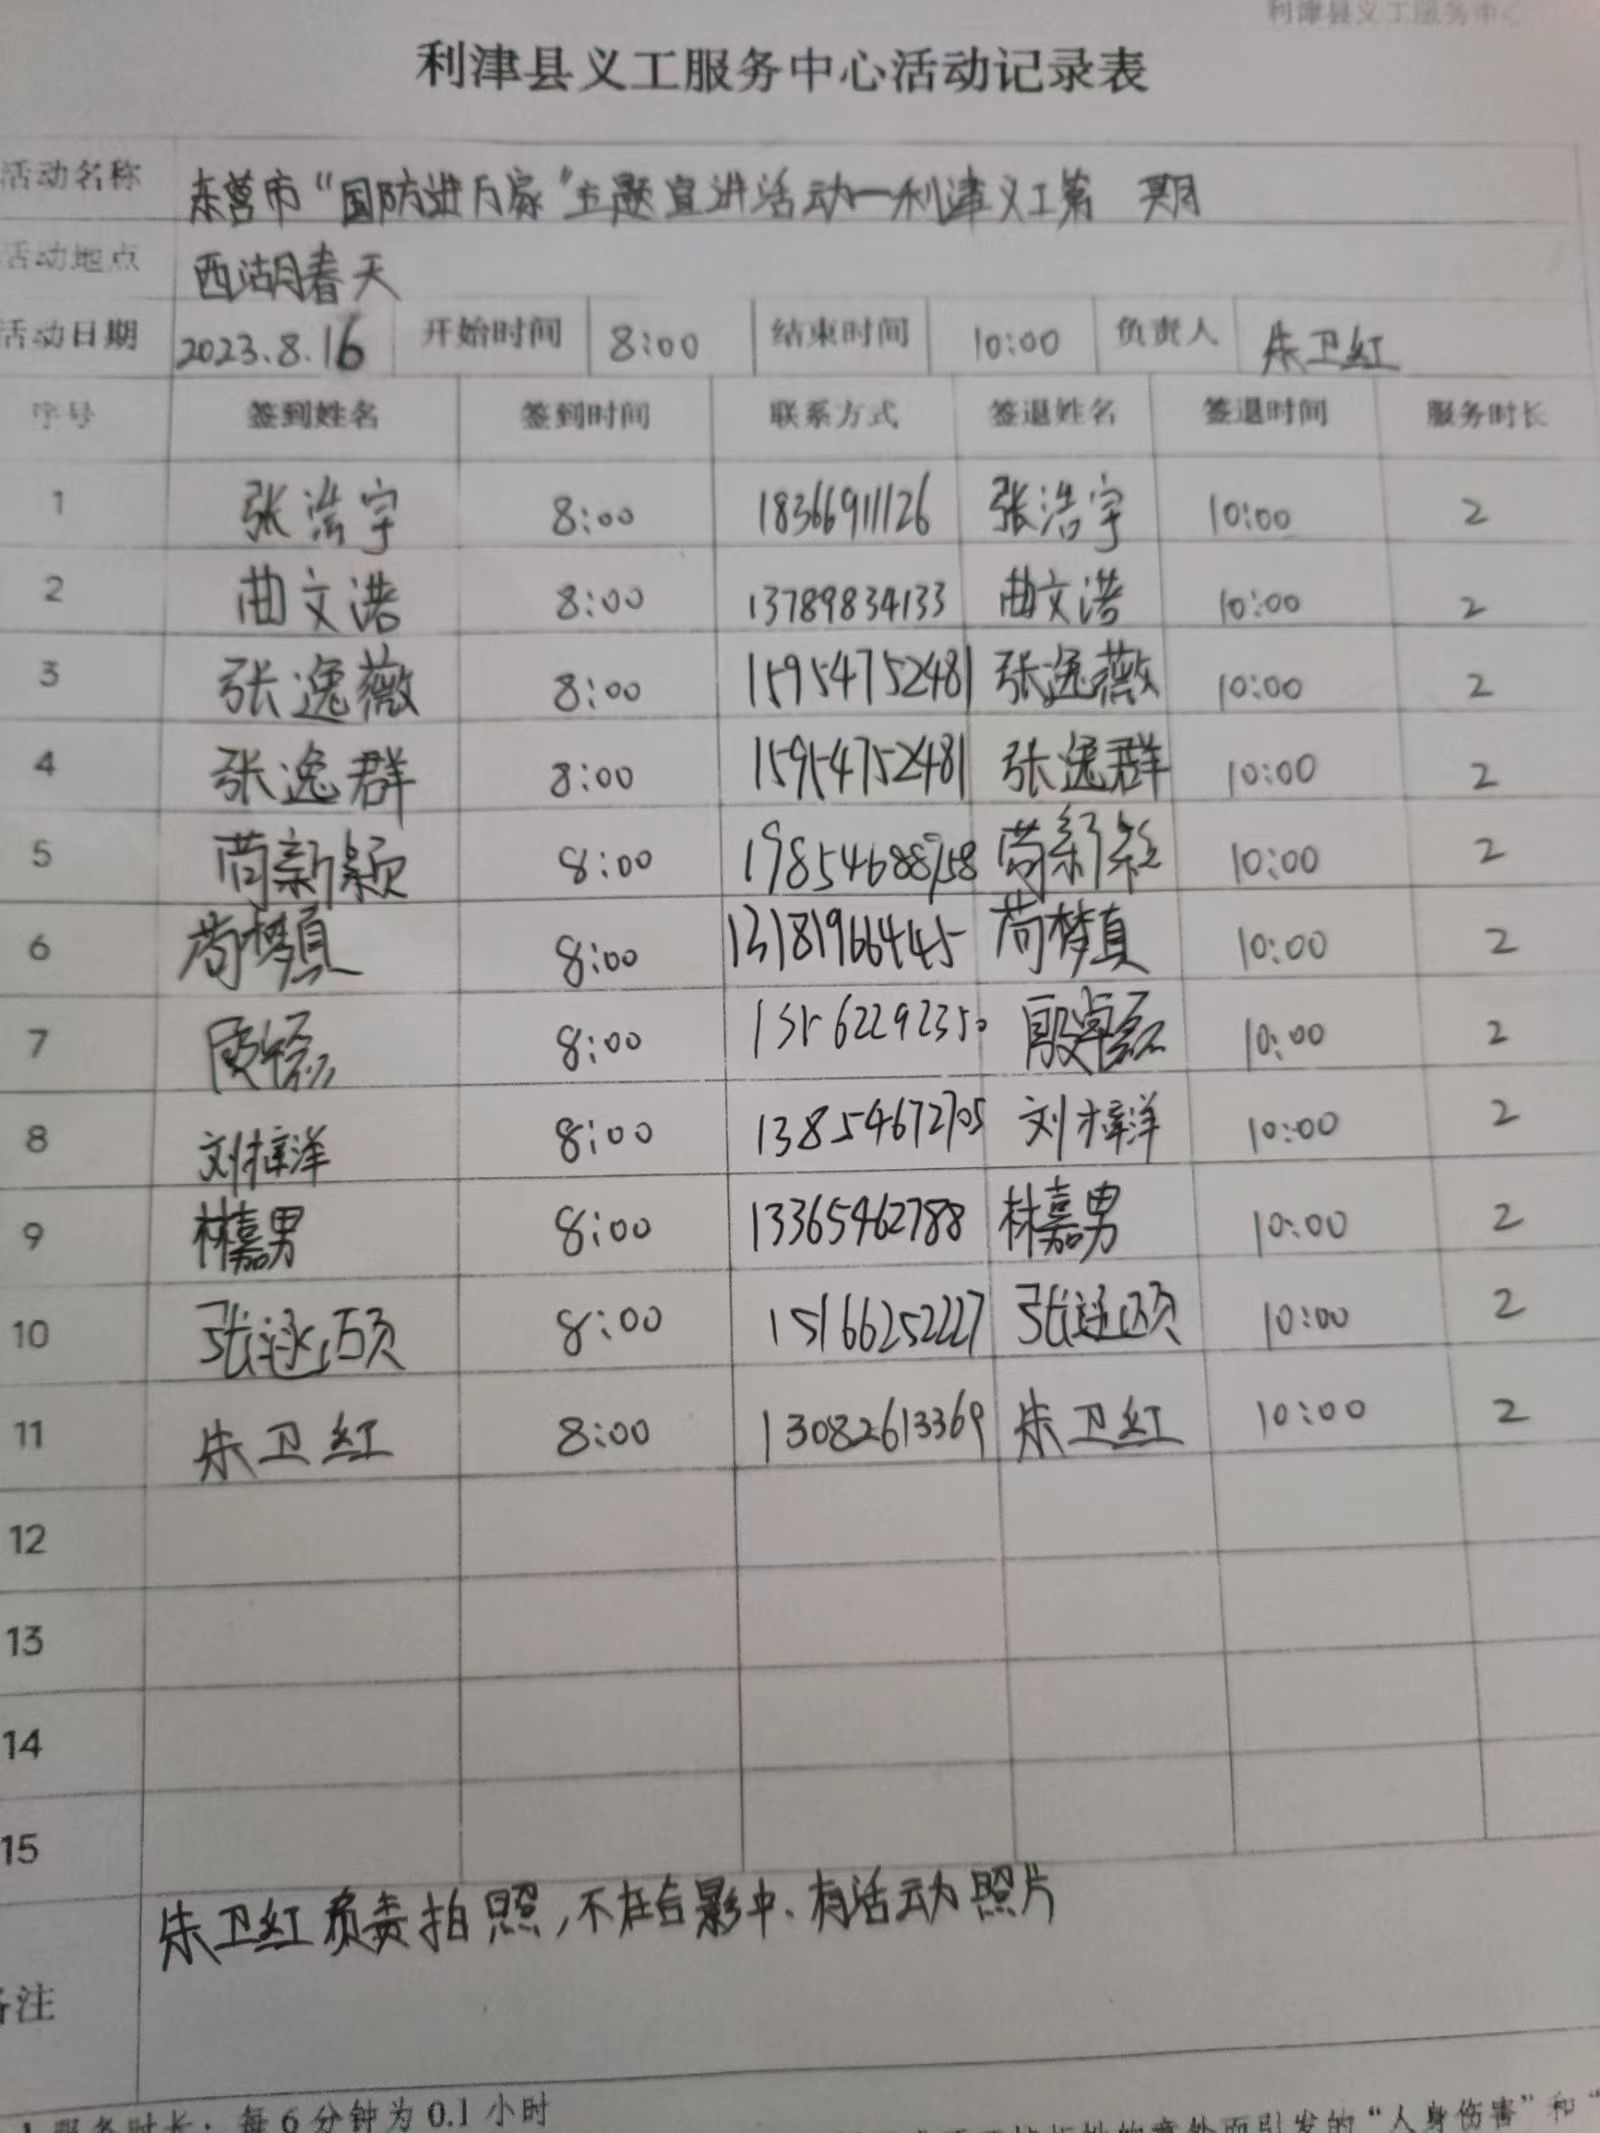 利津县义工服务中
利津县义工服务中心活动记录表
活动名称 东营市“国防进万家”主题宣讲活动一利津义工第 期
活动地点 西湖春天
活动日期 2023.8.16 开始时间 8:00 结束时间 10:00 负责人 朱卫红
序号 签到姓名 签到时间 联系方式 签退姓名 签退时间 服务时长
1 张浩宇 8:00 18366911126 张浩宇 10:00 2
2 曲文浩 8:00 13789834133 曲文浩 10:00 2
3 张逸薇 8:00 15954752481 张逸薇 10:00 2
4 张逸群 8:00 15954752481 张逸群 10:00 2
5 苘新颖 8:00 10:00 2
6 苘梦真 8:00 13181966445 苘梦真 10:00 2
7 8:00 10:00 2
8 刘梓洋 8:00 13854672705 刘梓洋 10:00 2
9 林嘉男 8:00 13365462788 林嘉男 10:00 2
10 8:00 15166252227 10:00 2
11 朱卫红 8:00 13082613369 朱卫红 10:00 2
12
13
14
15
朱卫红负责拍照,不在合影中、有活动照片
备注
1 服务时长:每6分钟为0.1小时
意外而引发的“人身伤害”和“